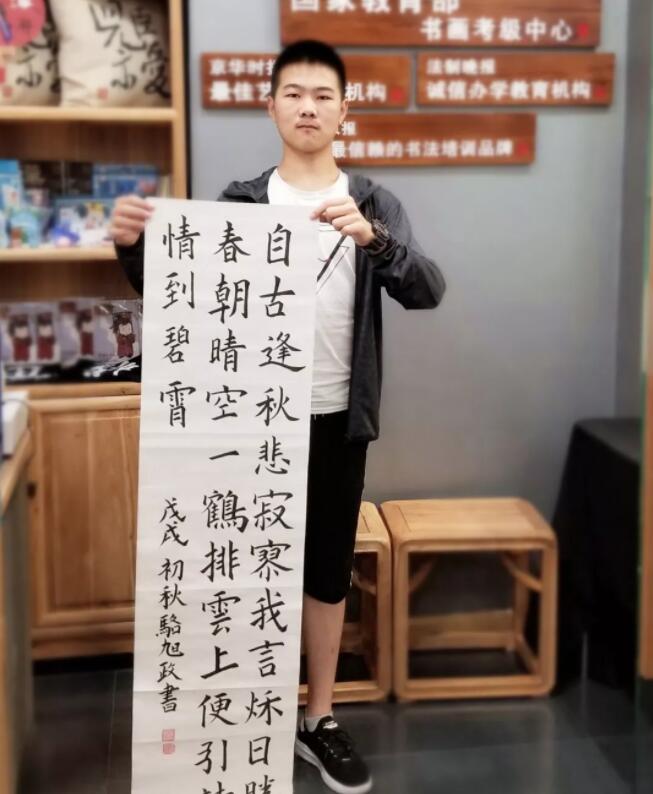 国家教育部
书画考级中心
京华时报
最佳艺
机构
法制晚报
诚信办学教育机构
报
最信赖的书法培训品牌
自古逢秋悲寂寥我言秌日勝
春朝晴空一鶴排雲上便引詩
情到碧霄
戊戌初秋駱旭政書